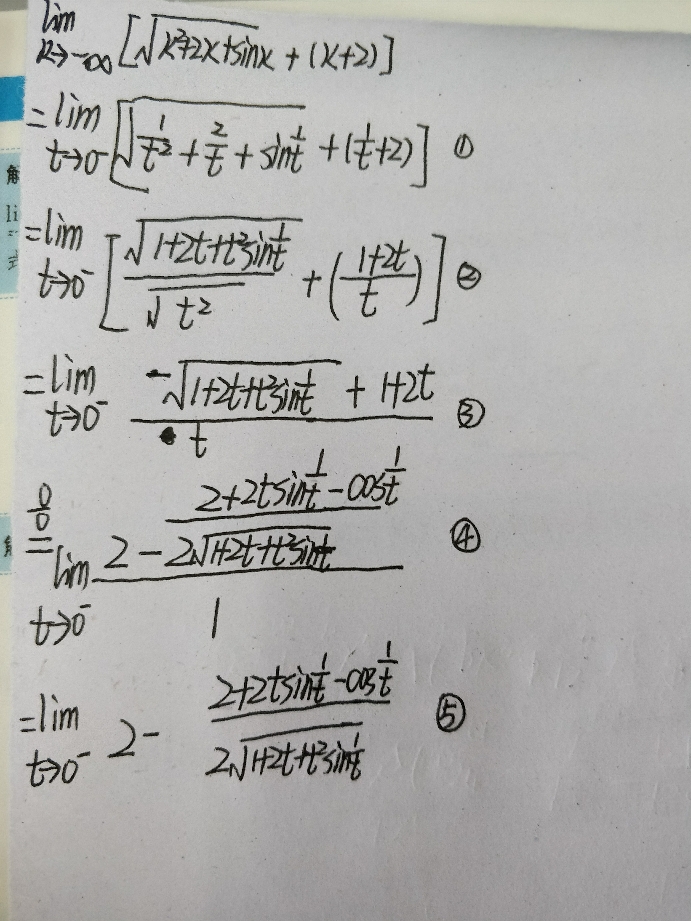 lim x→-∞ [√(x²+2x+sinx) + (x+2)]
= lim t→0⁻ [√(1/t² + 2/t + sin 1/t) + (1/t+2)] ①
= lim t→0⁻ [√(1+2t+t²sin 1/t) / √t² + ((1+2t)/t)] ②
= lim t→0⁻ (-√(1+2t+t²sin 1/t) + 1+2t) / t ③
0/0
= lim t→0⁻ (2 - (2+2tsin 1/t - cos 1/t) / (2√(1+2t+t²sin 1/t))) / 1 ④
= lim t→0⁻ 2 - (2+2tsin 1/t - cos 1/t) / (2√(1+2t+t²sin 1/t)) ⑤
解
li
=
式